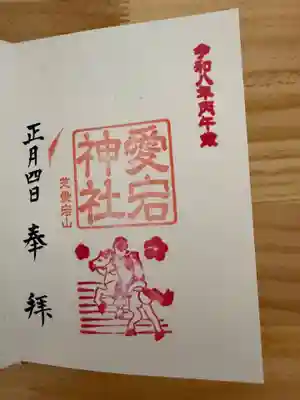 令和八年丙午歳
愛宕
神社
芝愛宕山
奉拝
正月四日